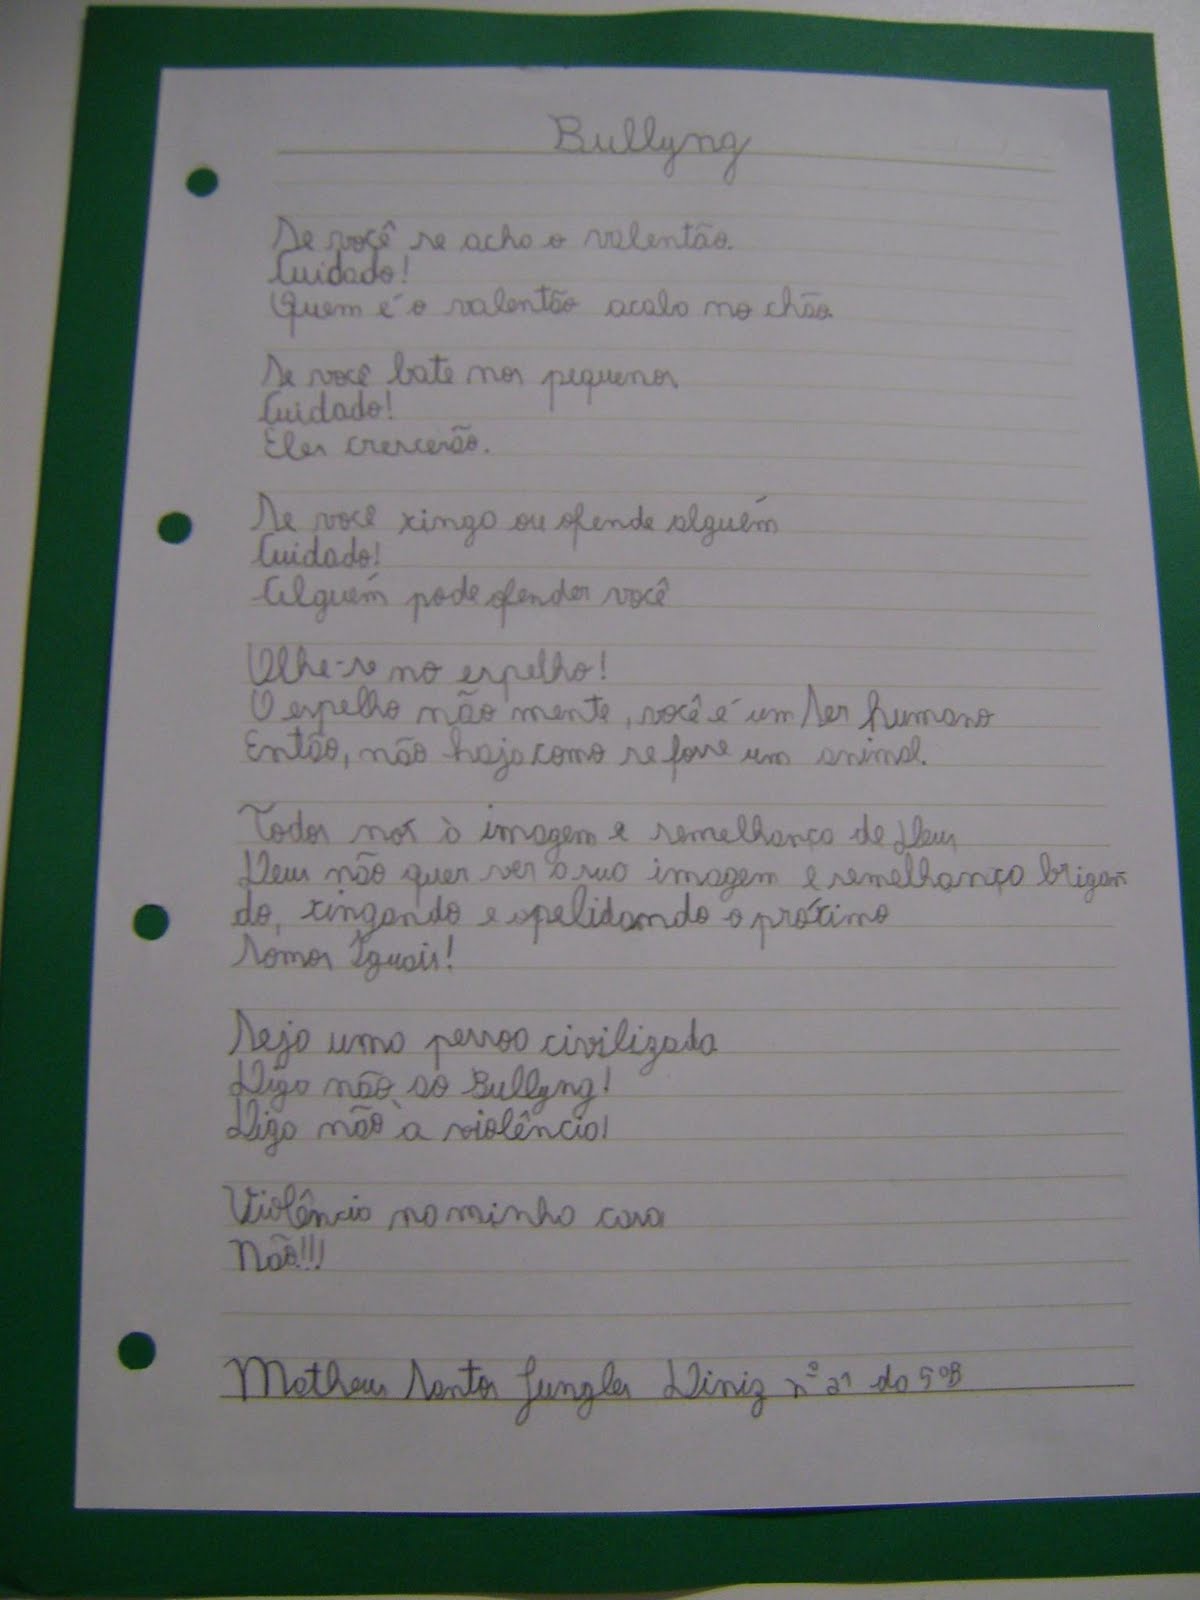 Bullyng
Se você se acha o valentão.
Cuidado!
Quem é o valentão acaba no chão.
Se você bate nos pequenos,
Cuidado!
Eles crescerão.
Se você xinga ou ofende alguém
Cuidado!
Alguém pode ofender você
Olhe-se no espelho!
O espelho não mente, você é um Ser humano
Então, não haja como se fosse um animal.
Todos nós à imagem e semelhança de Deus
Deus não quer ver a sua imagem e semelhança brigan
do, xingando e apelidando o próximo
Somos Iguais!
Seja uma pessoa civilizada
Diga não ao Bullyng!
Diga não à violência!
Violência na minha casa
Não!!!
Matheus Santos Jungles Diniz nº 21 do 5ºB